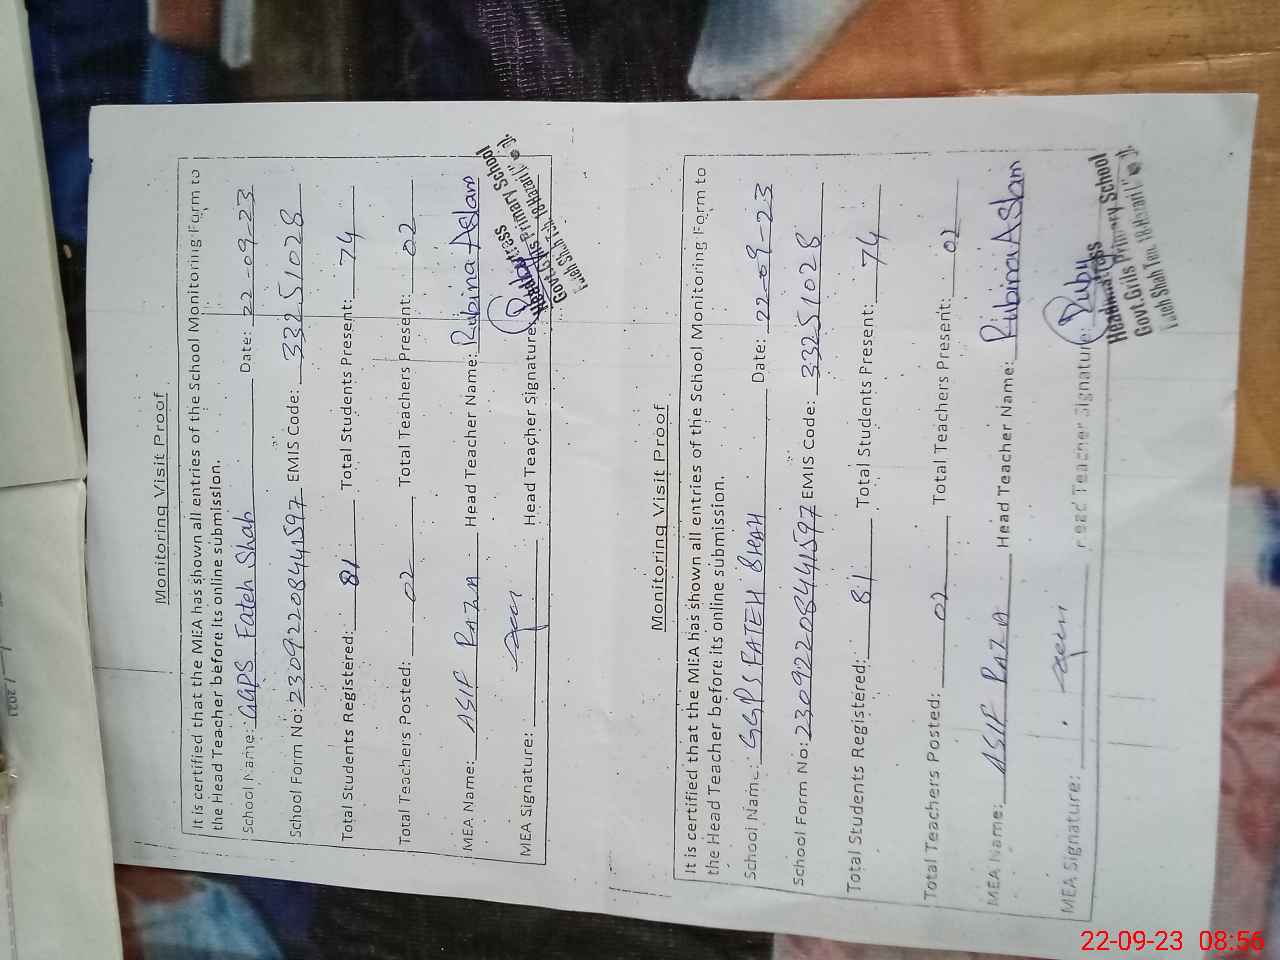 Monitoring Visit Proof
It is certified that the MEA has shown all entries of the School Monitoring Form to
the Head Teacher before its online submission.
School Name: GGPS Fateh Shah Date: 22-09-23
School Form No: 23092208441597 EMIS Code: 33251028
Total Students Registered: 81 Total Students Present: 74
Total Teachers Posted: 02 Total Teachers Present: 02
MEA Name: ASIF RAZA Head Teacher Name: Rubina Aslam
MEA Signature: Head Teacher Signature:
Headmistress
Govt. Grils Primary School
Fateh Shah Teh. 18-Hazari
Monitoring Visit Proof
It is certified that the MEA has shown all entries of the School Monitoring Form to
the Head Teacher before its online submission.
School Name: GGPS FATEH SHAH Date: 22-09-23
School Form No: 23092208441597 EMIS Code: 33251028
Total Students Registered: 81 Total Students Present: 74
Total Teachers Posted: 02 Total Teachers Present: 02
MEA Name: ASIF RAZA Head Teacher Name: Rubina Aslam
MEA Signature: Head Teacher Signature: Ruby
Headmistress
Govt. Grils Primary School
Fateh Shah Teh. 18-Hazari
22-09-23 08:56